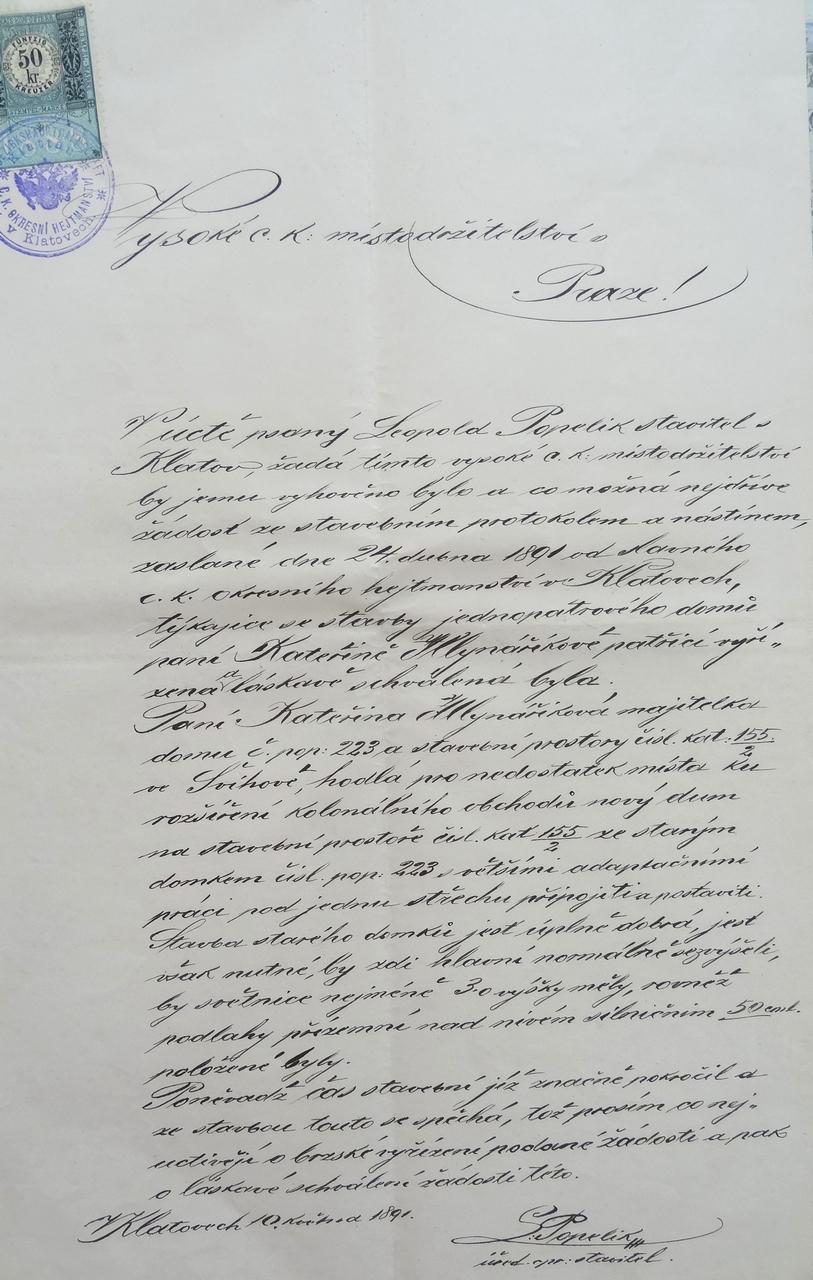 FÜNFZIG
50
kr.
KREUZER
C. K. OKRESNÍ HEJTMANSTVÍ
v Klatovech
Vysoké c. k. místodržitelství v
Praze!
V úctě psaný Leopold Popelik stavitel z
Klatov, žádá tímto vysoké c. k. místodržitelství
by jemu vyhověno bylo a co možná nejdříve
žádost ze stavebním protokolem a nástinem,
zaslané dne 24. dubna 1891 od slavného
c. k. okresního hejtmanství v Klatovech,
týkajíce se stavby jednopatrového domů
paní Kateřině Mlynáříkové patřící vyří„
zena a láskavě schválená byla.
Paní Kateřina Mlynáříková majitelka
domu č. pop: 223 a stavební prostory čísl. kat: 155/2
ve Švihově, hodlá pro nedostatek místa ku
rozšíření kolonálního obchodů nový dum
na stavební prostoře čísl. kat 155/2 ze starým
domkem čísl. pop: 223 s většími adaptačními
práci pod jednu střechu připojiti a postaviti.
Stavba starého domků jest úplně dobrá, jest
však nutné, by zdi hlavní normálně se zvýšeli,
by světnice nejméně 3.0 výšky měly, rovněž
podlahy přízemní nad nivém silničním 50 cmt.
položené byly.
Poněvadž čas stavební již značně pokročil a
ze stavbou touto se spěchá, tož prosím co nej„
uctivěji o brzské vyřízení podané žádosti a pak
o láskavé schválení žádosti této.
V Klatovech 10. května 1891.
L. Popelik
úřed. opr: stavitel.